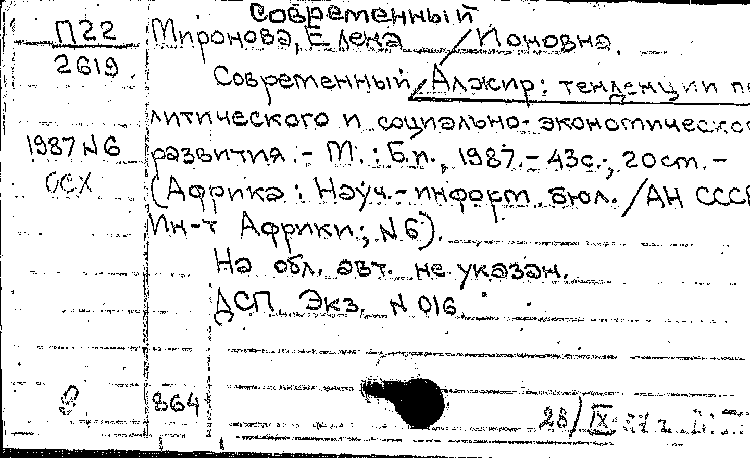 Современный
П22 Миронова, Елена Ионовна.
2619. Современный Алжир: тенденции по
литического и социально-экономическо
1987 N6 развития.- М.: Б.и., 1987.- 43с.; 20см.-
ССХ (Африка: Науч.-информ. бюл. / АН СССР
Ин-т Африки; N6).
На обл. авт. не указан.
ДСП. Экз. N 016.
864
28/IX